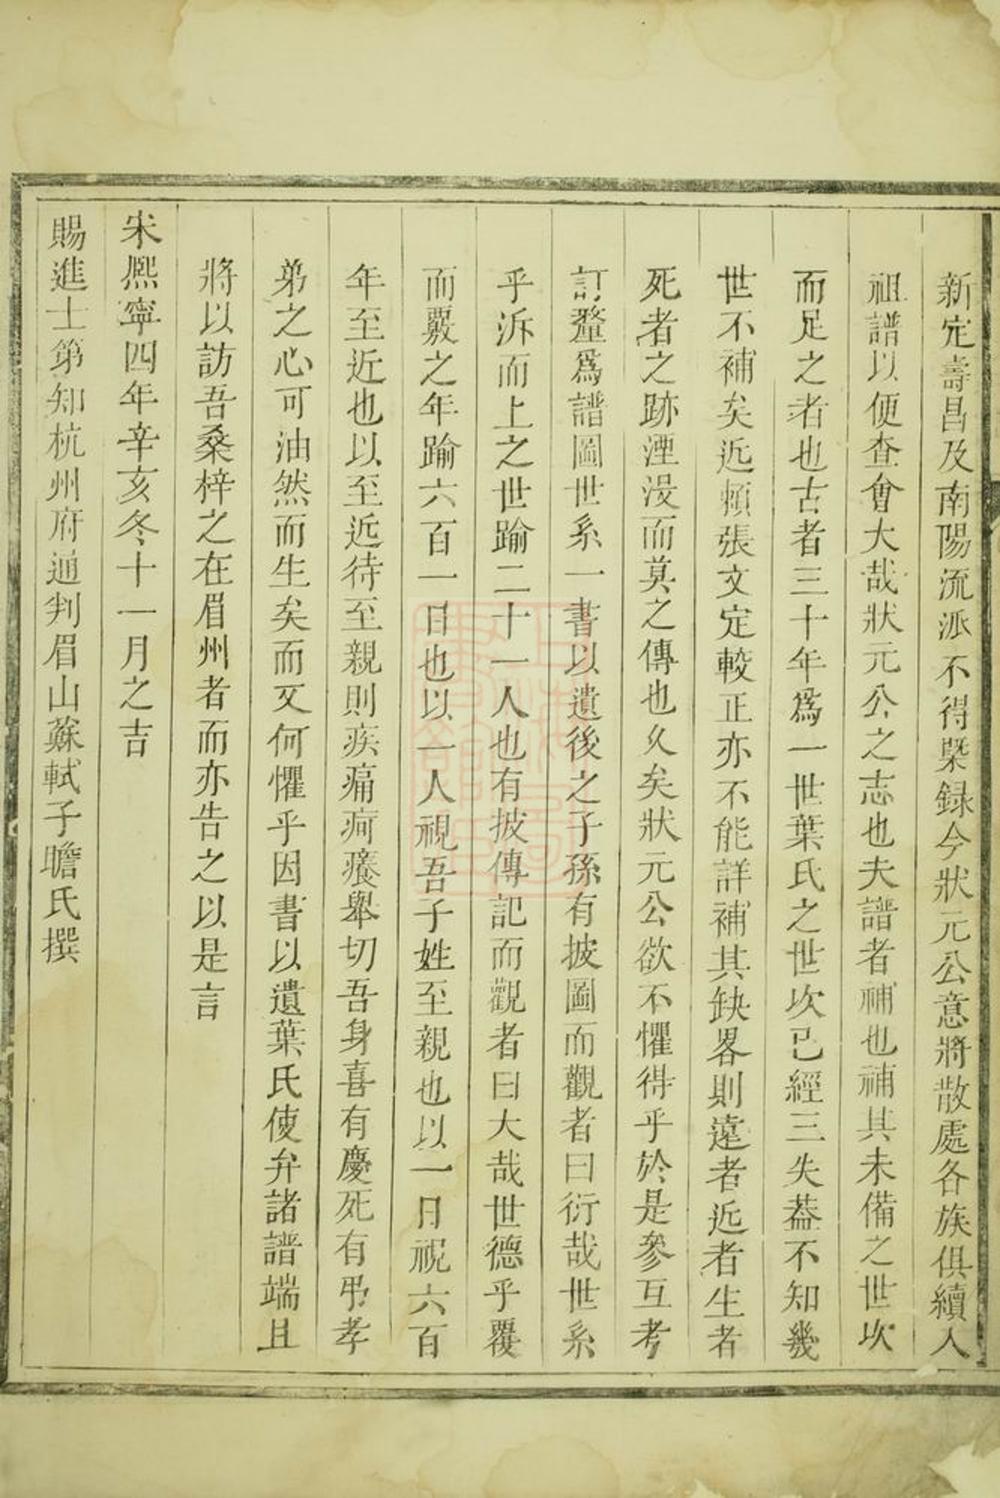 新定壽昌及南陽流派不得槩録今狀元公意將散處各族俱續入
祖譜以便查會大哉狀元公之志也夫譜者補也補其未備之世次
而足之者也古者三十年爲一世葉氏之世次已經三失葢不知幾
世不補矣近頼張文定較正亦不能詳補其缺畧則遠者近者生者
死者之跡湮没而莫之傳也久矣狀元公欲不懼得乎於是參互考
訂釐爲譜圖世系一書以遺後之子孫有披圖而觀者曰衍哉世系
乎泝而上之世踰二十一人也有披傳記而觀者曰大哉世德乎覆
而覈之年踰六百一日也以一人視吾子姓至親也以一日視六百
年至近也以至近待至親則疾痛疴癢舉切吾身喜有慶死有弔孝
弟之心可油然而生矣而又何懼乎因書以遺葉氏使弁諸譜端且
將以訪吾桑梓之在眉州者而亦告之以是言
宋熙寧四年辛亥冬十一月之吉
賜進士第知杭州府通判眉山蘇軾子瞻氏撰